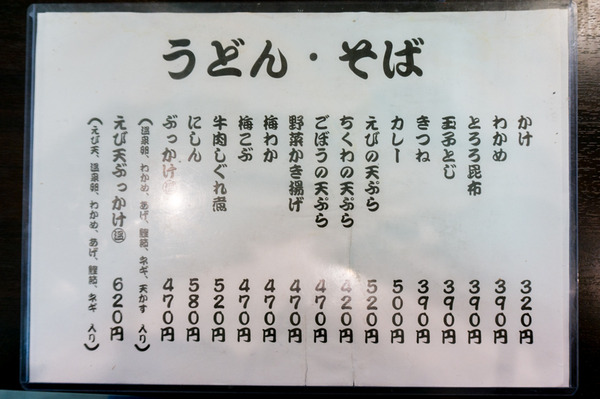 うどん・そば
かけ 320円
わかめ 390円
とろろ昆布 390円
玉子とじ 390円
きつね 390円
カレー 500円
えびの天ぷら 520円
ちくわの天ぷら 420円
ごぼうの天ぷら 470円
野菜かき揚げ 470円
梅わか 470円
梅こぶ 470円
牛肉しぐれ煮 520円
にしん 580円
ぶっかけ 470円
(温泉卵、わかめ、あげ、鰹節、ネギ、天かす 入り)
えび天ぶっかけ�の 620円
(えび天、温泉卵、わかめ、あげ、鰹節、ネギ 入り)